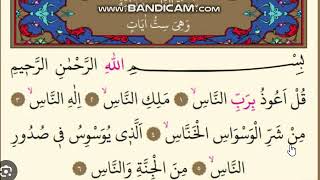 www.BANDICAM.com
وَهِيَ سِتُّ اٰيَاتٍ
بِسْــمِ اللهِ الرَّحْمٰنِ الرَّحِيمِ
قُلْ اَعُوذُ بِرَبِّ النَّاسِۙ ﴿١﴾ مَلِكِ النَّاسِۙ ﴿٢﴾ اِلٰهِ النَّاسِۙ ﴿٣﴾
مِنْ شَرِّ الْوَسْوَاسِ الْخَنَّاسِۙ ﴿٤﴾ اَلَّذِى يُوَسْوِسُ فِى صُدُورِ
النَّاسِۙ ﴿٥﴾ مِنَ الْجِنَّةِ وَالنَّاسِ ﴿٦﴾